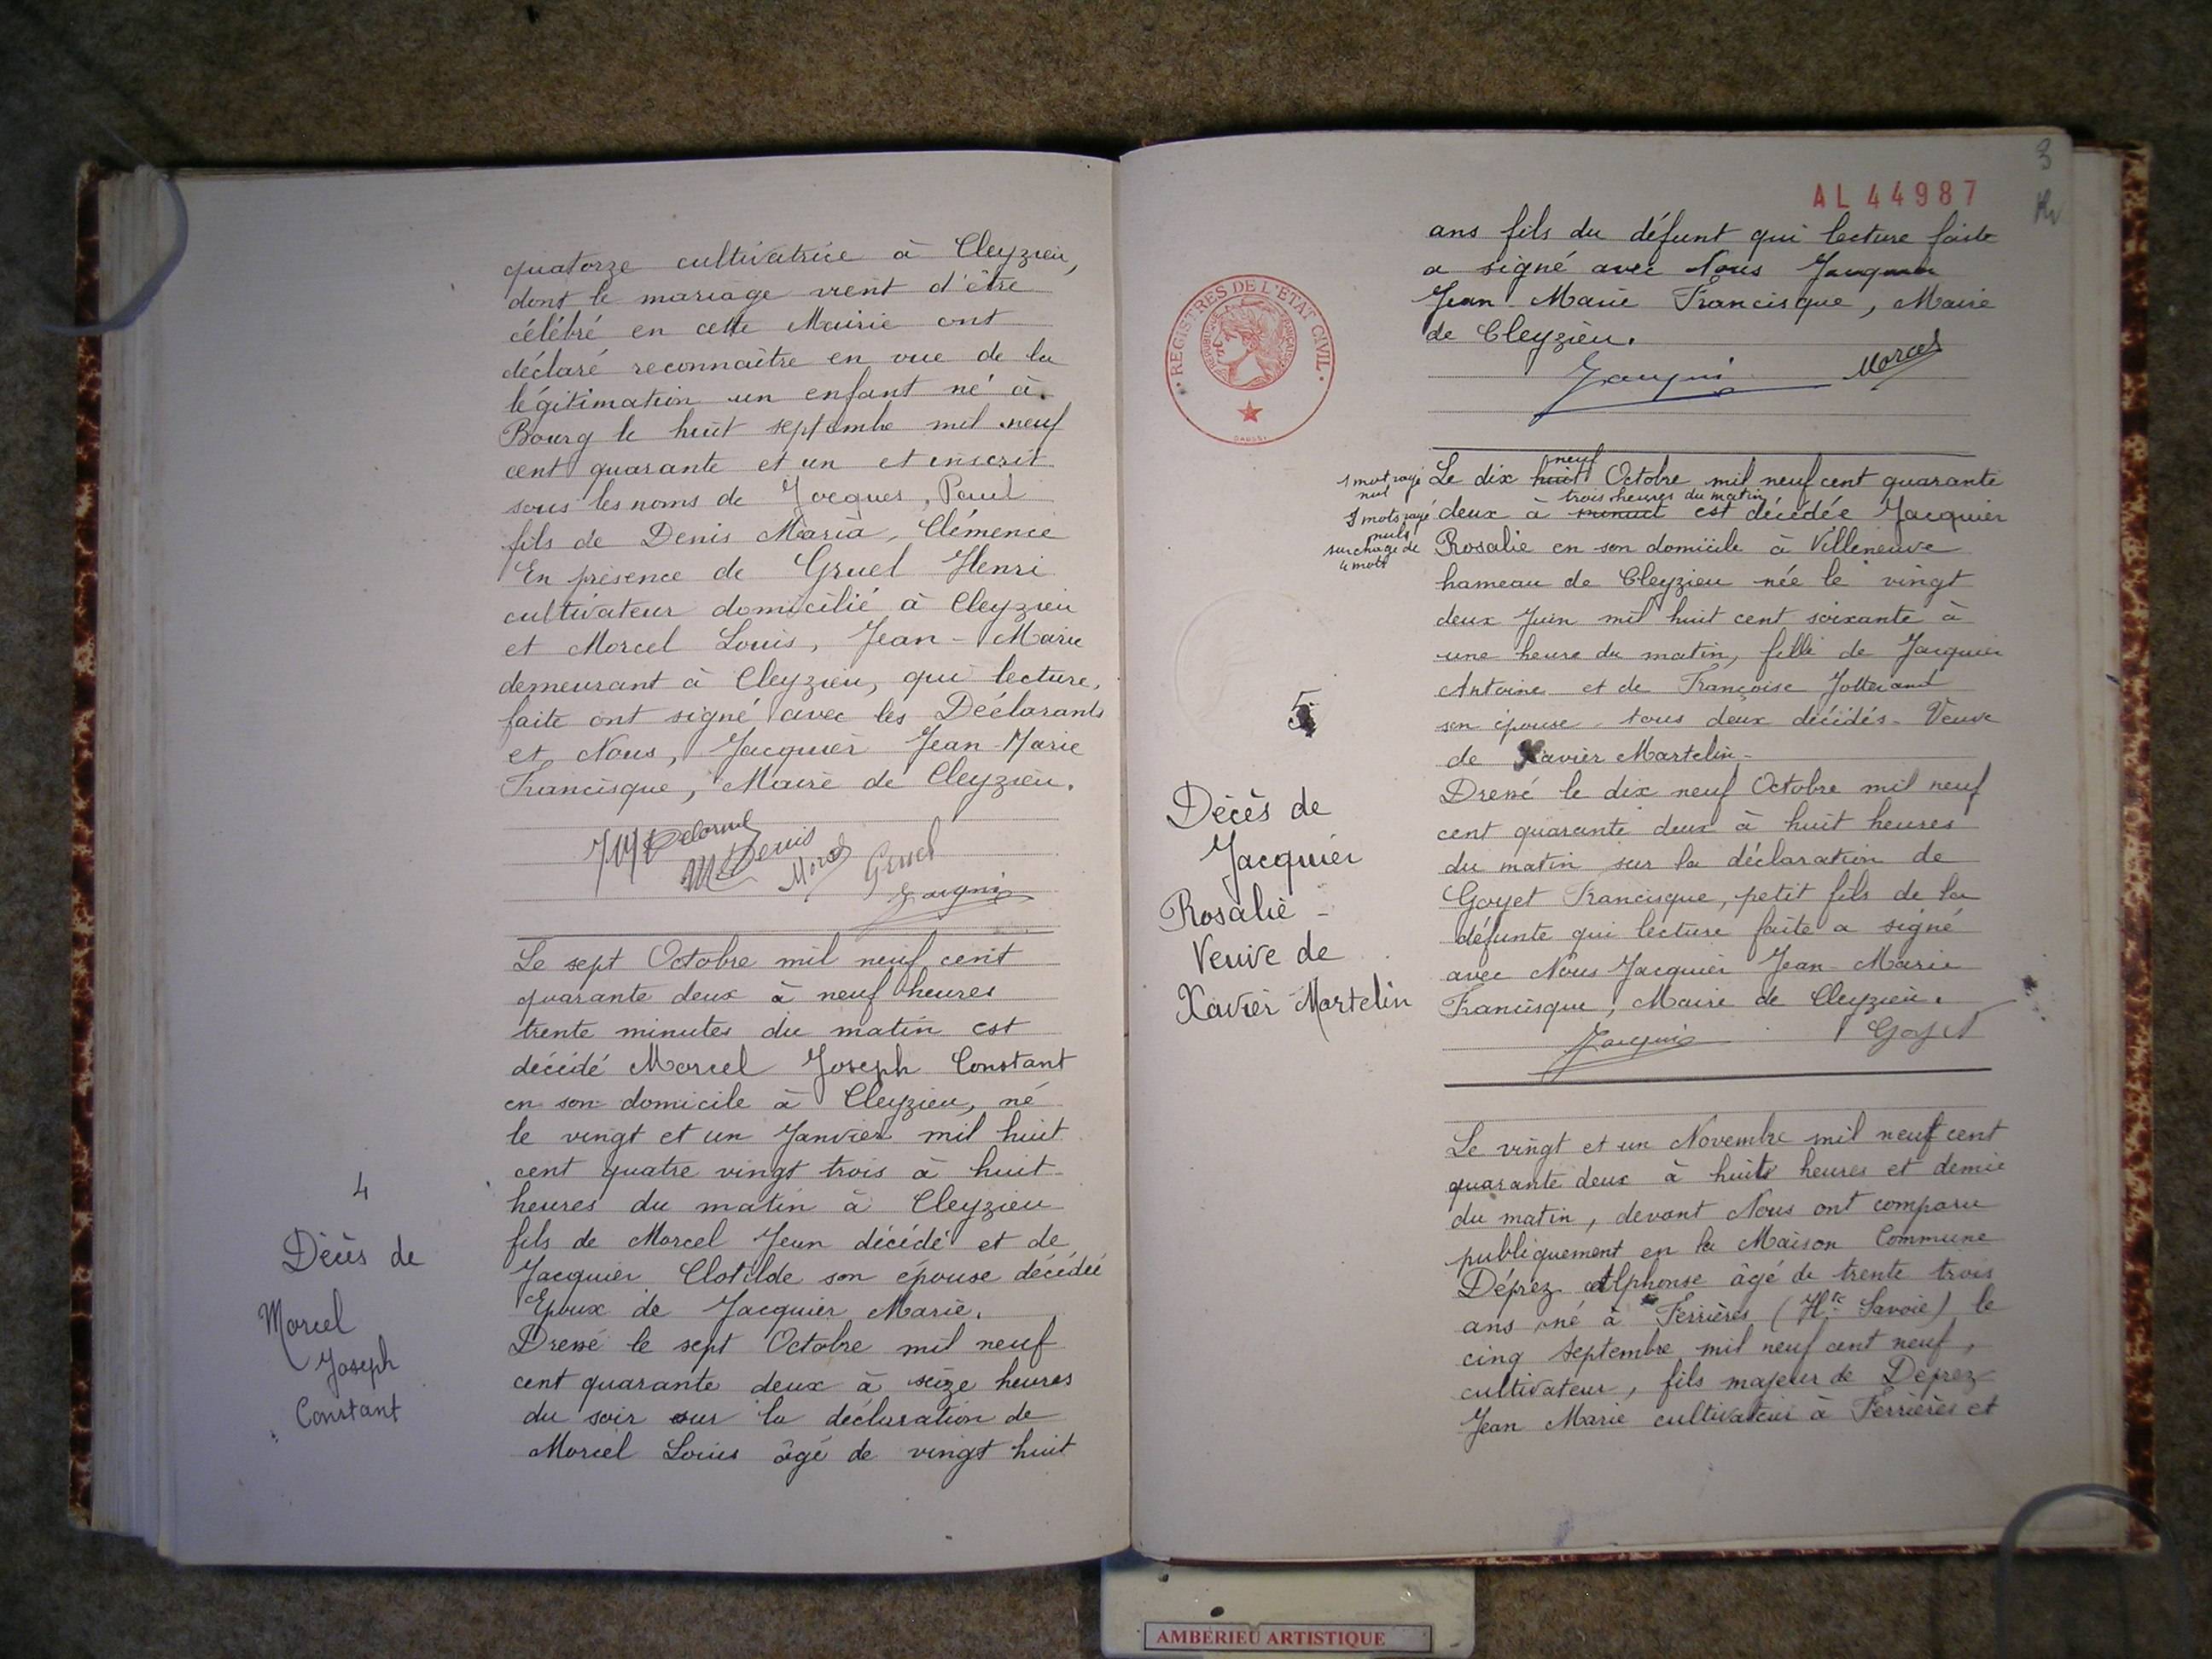 quatorze cultivatrice à Cleyzieu,
dont le mariage vient d'être
célébré en cette Mairie ont
déclaré reconnaître en vue de la
légitimation un enfant né à
Bourg le huit septembre mil neuf
cent quarante et un et inscrit
sous les noms de Jacques, Paul
fils de Denis Maria, Clémence
En présence de Gruel Henri
cultivateur domicilié à Cleyzieu
et Morcel Louis, Jean-Marie
demeurant à Cleyzieu, qui lecture,
faite ont signé avec les Déclarants
et Nous, Jacquier Jean-Marie
Francisque, Maire de Cleyzieu.
M Denis Morcel Gruel
Jacquier
Le sept Octobre mil neuf cent
quarante deux à neuf heures
trente minutes du matin est
décédé Morcel Joseph Constant
en son domicile à Cleyzieu, né
le vingt et un Janvier mil huit
cent quatre vingt trois à huit
heures du matin à Cleyzieu
fils de Morcel Jean décédé et de
Jacquier Clotilde son épouse décédée
Epoux de Jacquier Marie.
Dressé le sept Octobre mil neuf
cent quarante deux à seize heures
du soir sur la déclaration de
Morcel Louis âgé de vingt huit
4
Décès de
Morcel
Joseph
Constant
3
AL 44987
ans fils du défunt qui lecture faite
a signé avec Nous Jacquier
Jean-Marie Francisque, Maire
de Cleyzieu.
Jacquier Morcel
REGISTRES DE L'ETAT CIVIL
REPUBLIQUE FRANÇAISE
1 mot rayé
nul
mots rayé
nuls
surchage de
4 mots
neuf
Le dix huit Octobre mil neuf cent quarante
trois heures du matin
deux à minuit est décédée Jacquier
Rosalie en son domicile à Villeneuve
hameau de Cleyzieu née le vingt
deux Juin mil huit cent soixante à
une heure du matin, fille de Jacquier
Antoine et de Françoise Jotterand
son épouse tous deux décédés - Veuve
de Xavier Martelin -
Dressé le dix neuf Octobre mil neuf
cent quarante deux à huit heures
du matin sur la déclaration de
Goyet Francisque, petit fils de la
défunte qui lecture faite a signé
avec Nous Jacquier Jean-Marie
Francisque, Maire de Cleyzieu.
Jacquier Goyet
5
Décès de
Jacquier
Rosalie -
Veuve de
Xavier Martelin
Le vingt et un Novembre mil neuf cent
quarante deux à huit heures et demie
du matin, devant Nous ont comparu
publiquement en la Maison Commune
Déprez Alphonse âgé de trente trois
ans né à Ferrières (Hte Savoie) le
cinq septembre mil neuf cent neuf,
cultivateur, fils majeur de Déprez
Jean Marie cultivateur à Ferrières et
AMBERIEU ARTISTIQUE